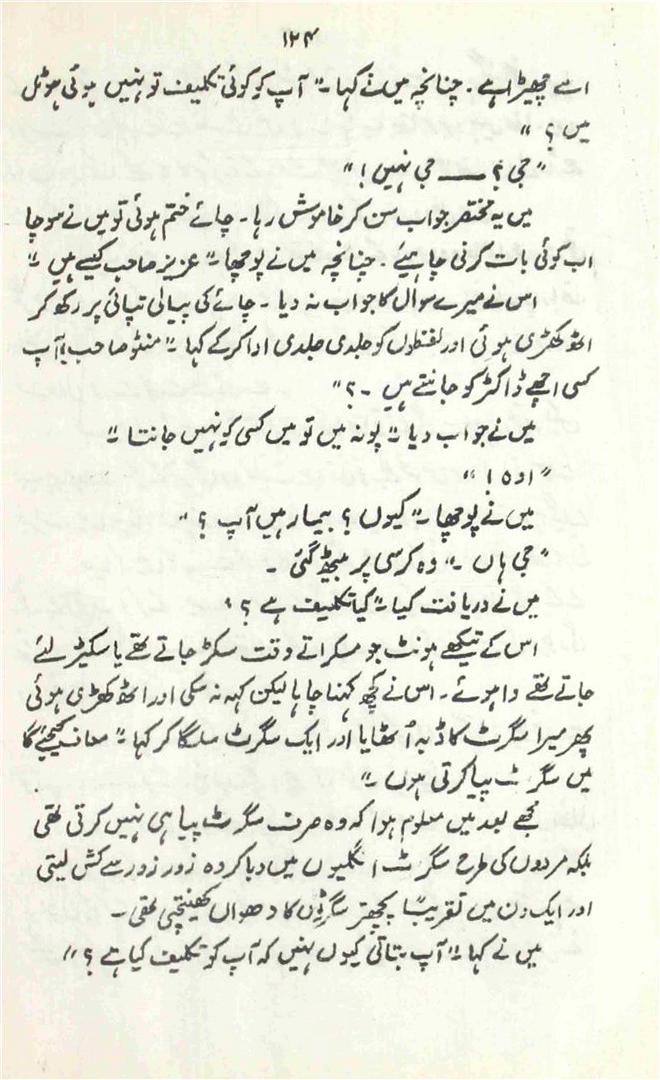 ۱۲۴
اسے چھیڑا ہے۔ چنانچہ میں نے کہا۔" آپ کو کوئی تکلیف تو نہیں ہوئی ہوٹل
میں ؟ "
"جی ؟ ـــــ جی نہیں ! "
میں یہ مختصر جواب سن کر خاموش رہا۔ چائے ختم ہوئی تو میں نے سوچا
اب کوئی بات کرنی چاہیئے۔ چنانچہ میں نے پوچھا۔" عزیز صاحب کیسے ہیں۔"
اس نے میرے سوال کا جواب نہ دیا۔ چائے کی پیالی تپائی پر رکھ کر
اٹھ کھڑی ہوئی اور لفظوں کو جلدی جلدی ادا کر کے کہا۔" منٹو صاحب ! آپ
کسی اچھے ڈاکٹر کو جانتے ہیں۔ ؟ "
میں نے جواب دیا۔" پونہ میں تو میں کسی کو نہیں جانتا۔"
" اوہ ! "
میں نے پوچھا۔" کیوں ؟ بیمار ہیں آپ ؟ "
"جی ہاں۔" وہ کرسی پر بیٹھ گئی۔
میں نے دریافت کیا۔" کیا تکلیف ہے ؟ "
اس کے تیکھے ہونٹ جو مسکراتے وقت سکڑ جاتے تھے یا سکیڑ لئے
جاتے تھے وا ہوئے۔ اس نے کچھ کہنا چاہا لیکن کہہ نہ سکی اور اٹھ کھڑی ہوئی
پھر میرا سگرٹ کا ڈبہ اٹھایا اور ایک سگرٹ سلگا کر کہا۔" معاف کیجئے گا
میں سگرٹ پیا کرتی ہوں۔"
مجھے بعد میں معلوم ہوا کہ وہ صرف سگرٹ پیا ہی نہیں کرتی تھی
بلکہ مردوں کی طرح سگرٹ انگلیوں میں دبا کر وہ زور زور سے کش لیتی
اور ایک دن میں تقریباً پچھتر سگرٹوں کا دھواں کھینچتی تھی۔
میں نے کہا۔" آپ بتاتی کیوں نہیں کہ آپ کو تکلیف کیا ہے ؟ "